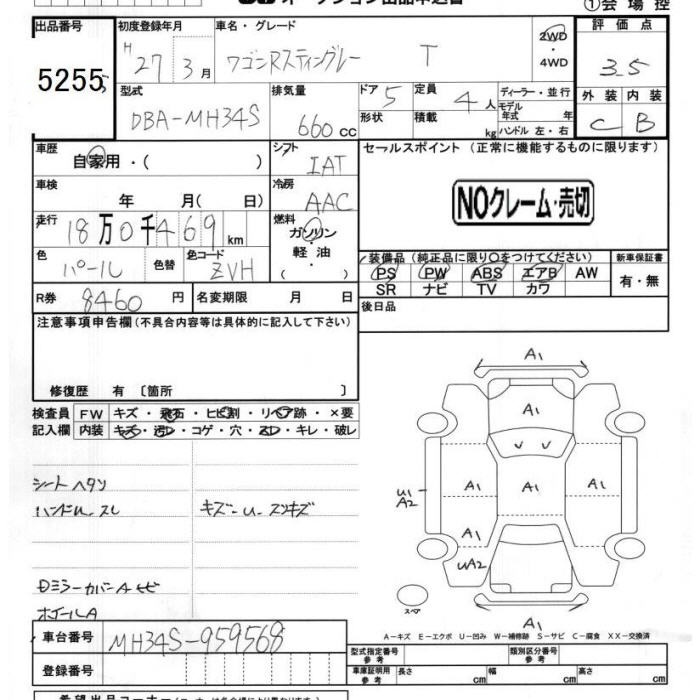 ①会場控
出品番号 初度登録年月 車名・グレード 評価点
5255 H27 3月 ワゴンRスティングレー T 2WD・4WD 3.5
型式 排気量 ドア 定員 ディーラー・並行 外装 内装
DBA-MH34S 660cc 5 4人 モデル年式 年 C B
形状 積載 kg ハンドル 左・右
車歴 シフト セールスポイント (正常に機能するものに限ります)
自家用・( ) IAT
車検 冷房
年 月( 日) AAC NOクレーム・売切
走行 燃料
18万0千469km ガソリン・軽油
色 色替 色コード 装備品 (純正品に限り〇をつけてください) 新車保証書
パール ZVH PS PW ABS エアB AW 有・無
SR ナビ TV カワ
R券 8460円 名変期限 月 日 後日品
注意事項申告欄(不具合内容等は具体的に記入して下さい)
修復歴 有 〔箇所 〕
検査員 FW キズ・飛石・ヒビ割・リペア跡・×要
記入欄 内装 キズ・汚レ・コゲ・穴・スレ・キレ・破レ
シート ヘタリ
ハンドル スレ キズ-U- スリキズ
DミラーカバーA ヒビ
ホイールA
A1
A1
A1 A1 A1
U1
A2
A1
UA2
A1
スペア
A-キズ E-エクボ U-凹み W-補修跡 S-サビ C-腐食 XX-交換済
車台番号 MH34S-959568
型式指定番号 参考 類別区分番号 参考
登録番号 車庫証明用 参考 長さ cm 幅 cm 高さ cm